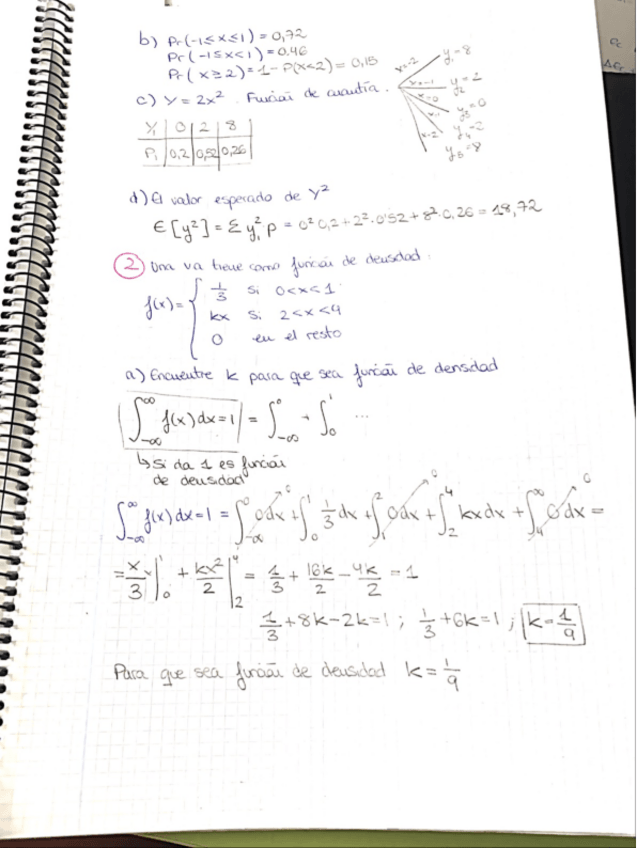 b) Pr(-1≤x≤1) = 0,72
Pr(-1≤x<1) = 0.46
Pr(x≥2) = 1 - P(x<2) = 0,15
c) Y = 2x². Función de cuantía.
x=-2 y=8
x=-1 y=2
x=0 y₃=0
x=1 y₄=2
x=2 y₅=8
Yᵢ 0 2 8
Pᵢ 0,2 0,52 0,26
d) El valor esperado de Y²
E[y²] = Σ yᵢ² p = 0²·0,2 + 2²·0'52 + 8²·0,26 = 18,72
② Una va tiene como función de densidad:
f(x) = { 1/3 si 0<x<1
kx si 2<x<4
0 en el resto
a) Encuentre k para que sea función de densidad
∫_{-∞}^{∞} f(x)dx=1 = ∫_{-∞}^{0} + ∫_{0}^{1} ...
↳ Si da 1 es función
de densidad
∫_{-∞}^{∞} f(x)dx=1 = ∫_{-∞}^{0} 0dx + ∫_{0}^{1} 1/3 dx + ∫_{1}^{2} 0dx + ∫_{2}^{4} kxdx + ∫_{4}^{∞} 0dx =
= x/3 |₀¹ + kx²/2 |₂⁴ = 1/3 + 16k/2 - 4k/2 = 1
1/3 + 8k - 2k = 1 ; 1/3 + 6k = 1 ; k = 1/9
Para que sea función de densidad k = 1/9